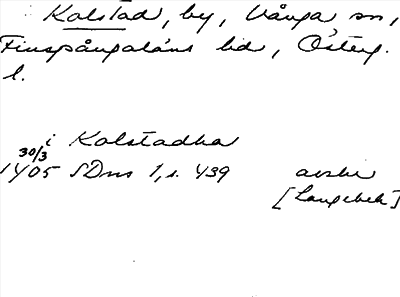 Kalstad, by, Vånga sn,
Finspångaläns hd, Österg.
l.
i Kalstadha
30/3
1405 SDns 1, s. 439 avskr
[Langebek]